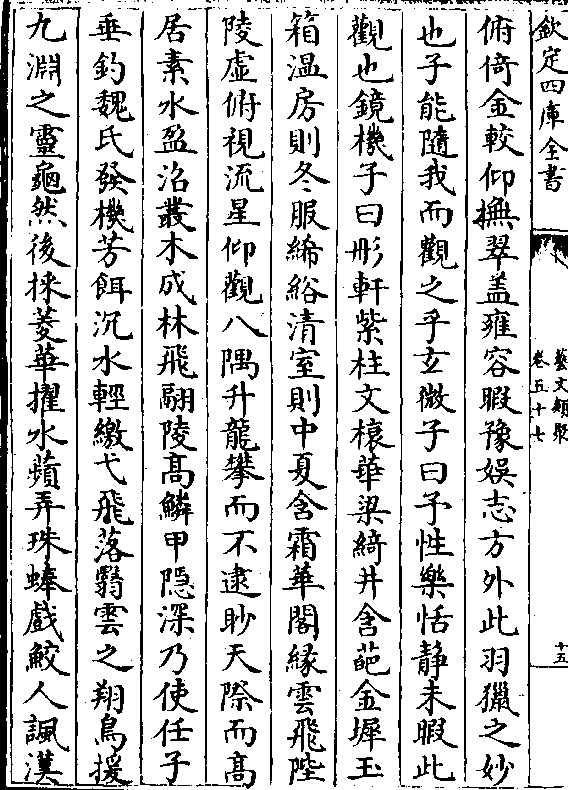 欽定四庫全書
藝文類聚
卷五十七
十五
俯倚金較仰撫翠盖雍容暇豫娱志方外此羽獵之妙
也子能隨我而觀之乎玄微子曰予性樂恬静未暇此
觀也鏡機子曰彤軒紫柱文榱華梁綺井含葩金墀玉
箱温房則冬服絺綌清室則中夏含霜華閣縁雲飛陛
陵虚俯視流星仰觀八隅升龍攀而不逮眇天際而高
居素水盈沼叢木成林飛翮陵高鱗甲隠深乃使任子
垂釣魏氏發機芳餌沉水輕繳弋飛落翳雲之翔鳥援
九淵之靈龜然後採菱華擢水蘋弄珠蜯戲鮫人諷漢